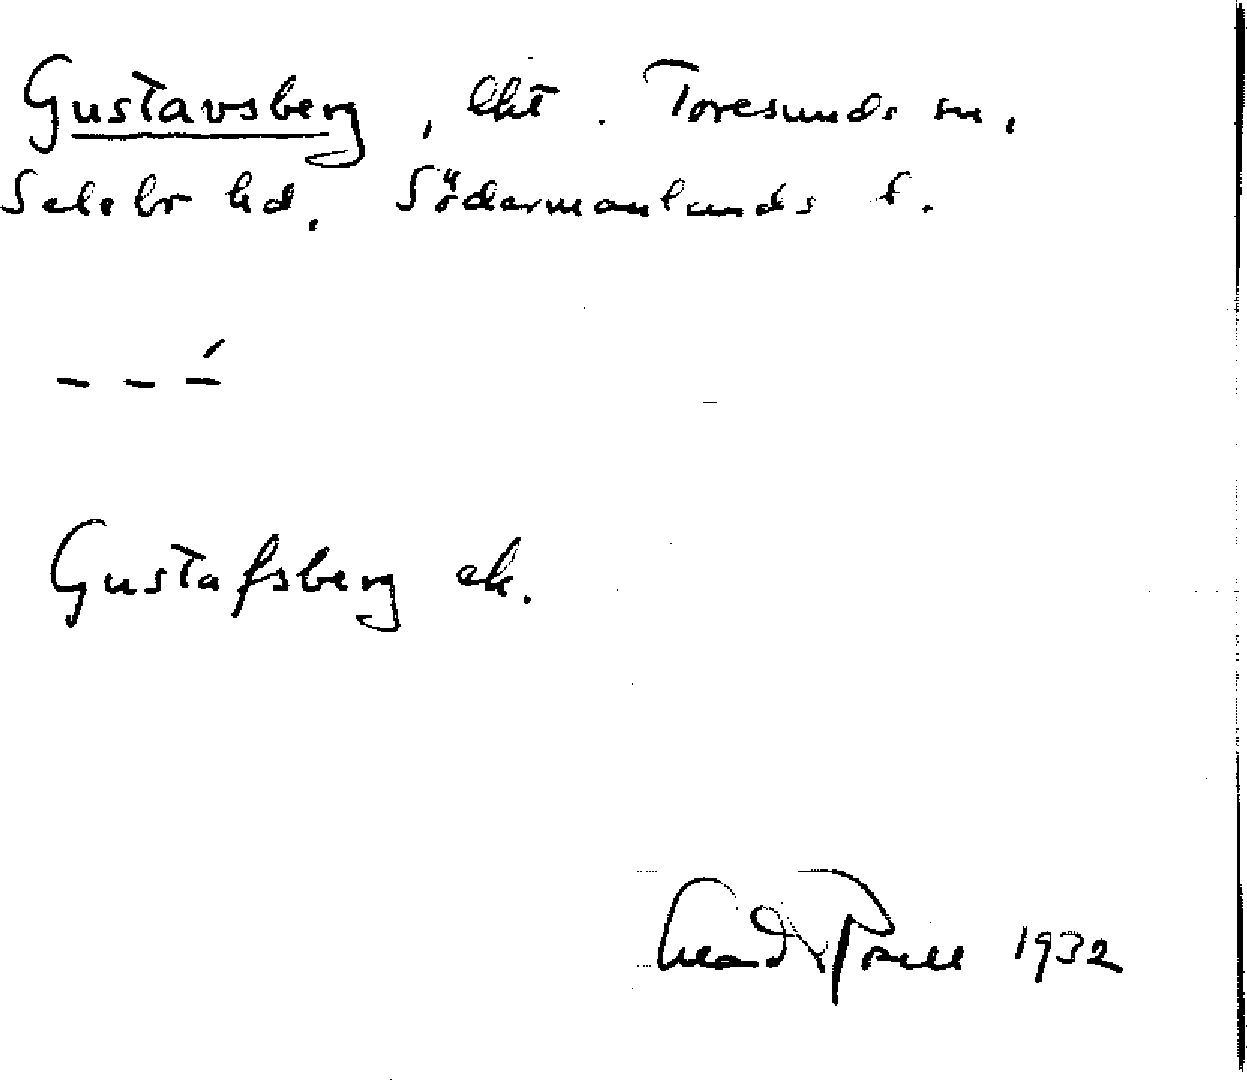 Gustavsberg, lht. Toresunds sn,
Selebo hd, Södermanlands l.
– – –́
Gustafsberg ek.
1932